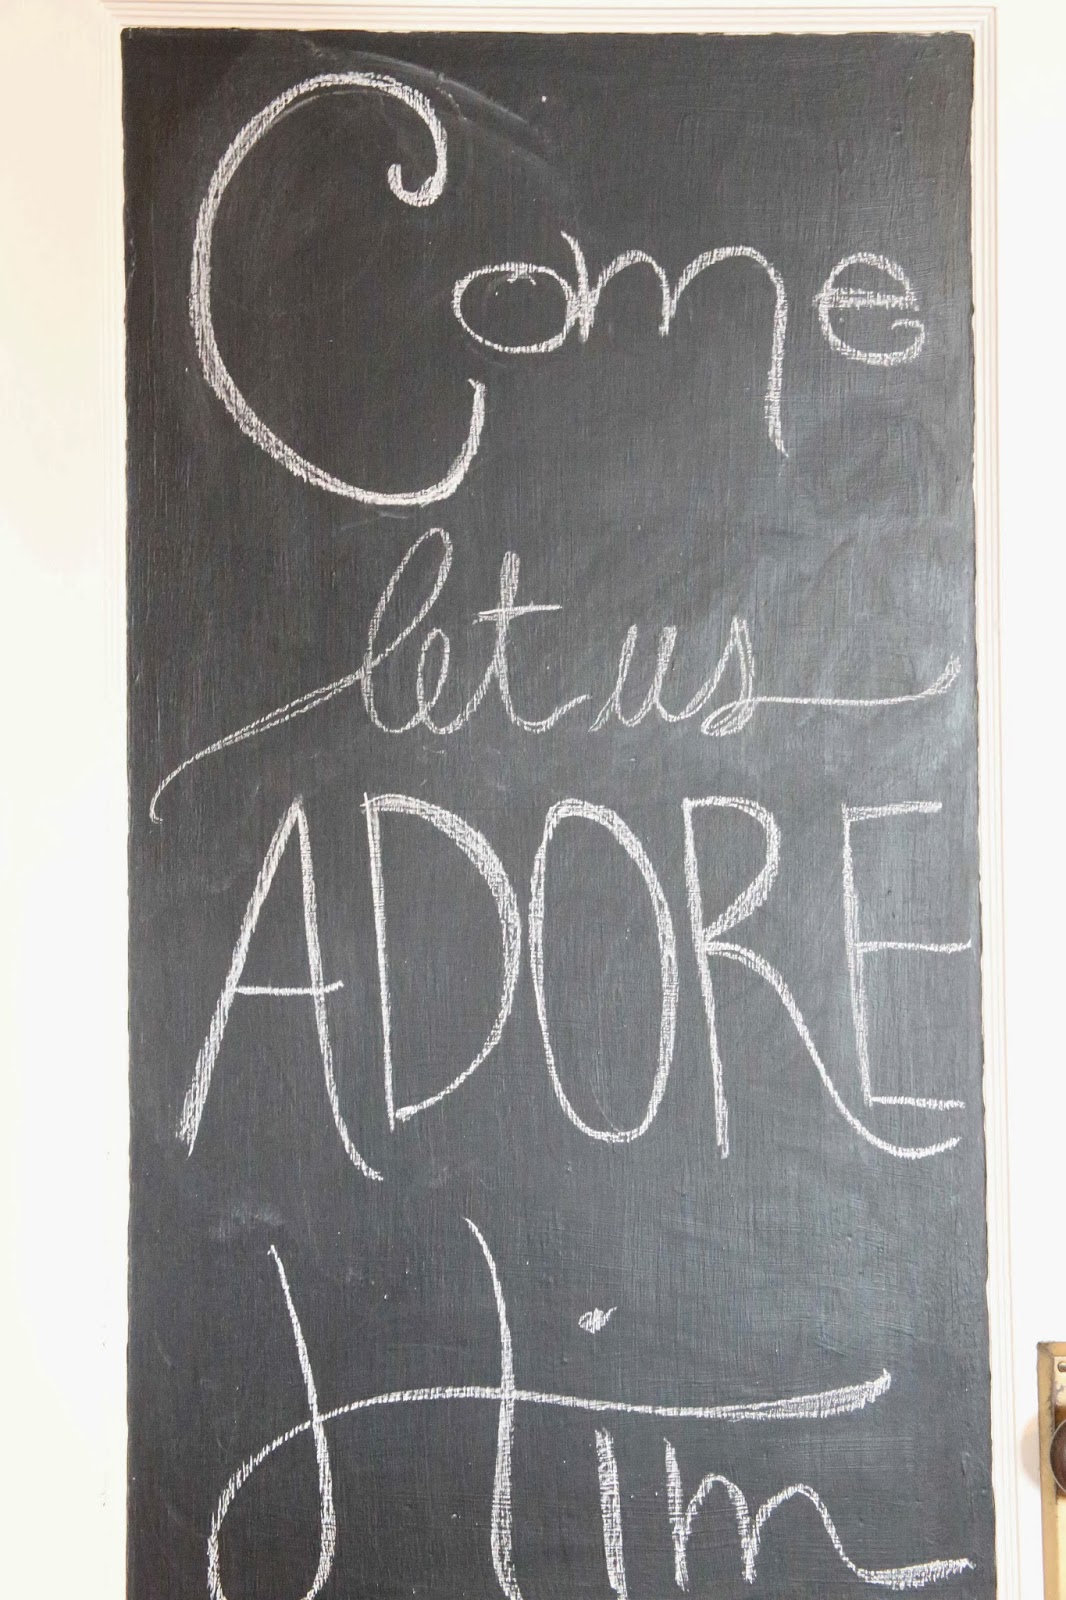 Come
let us
ADORE
Him